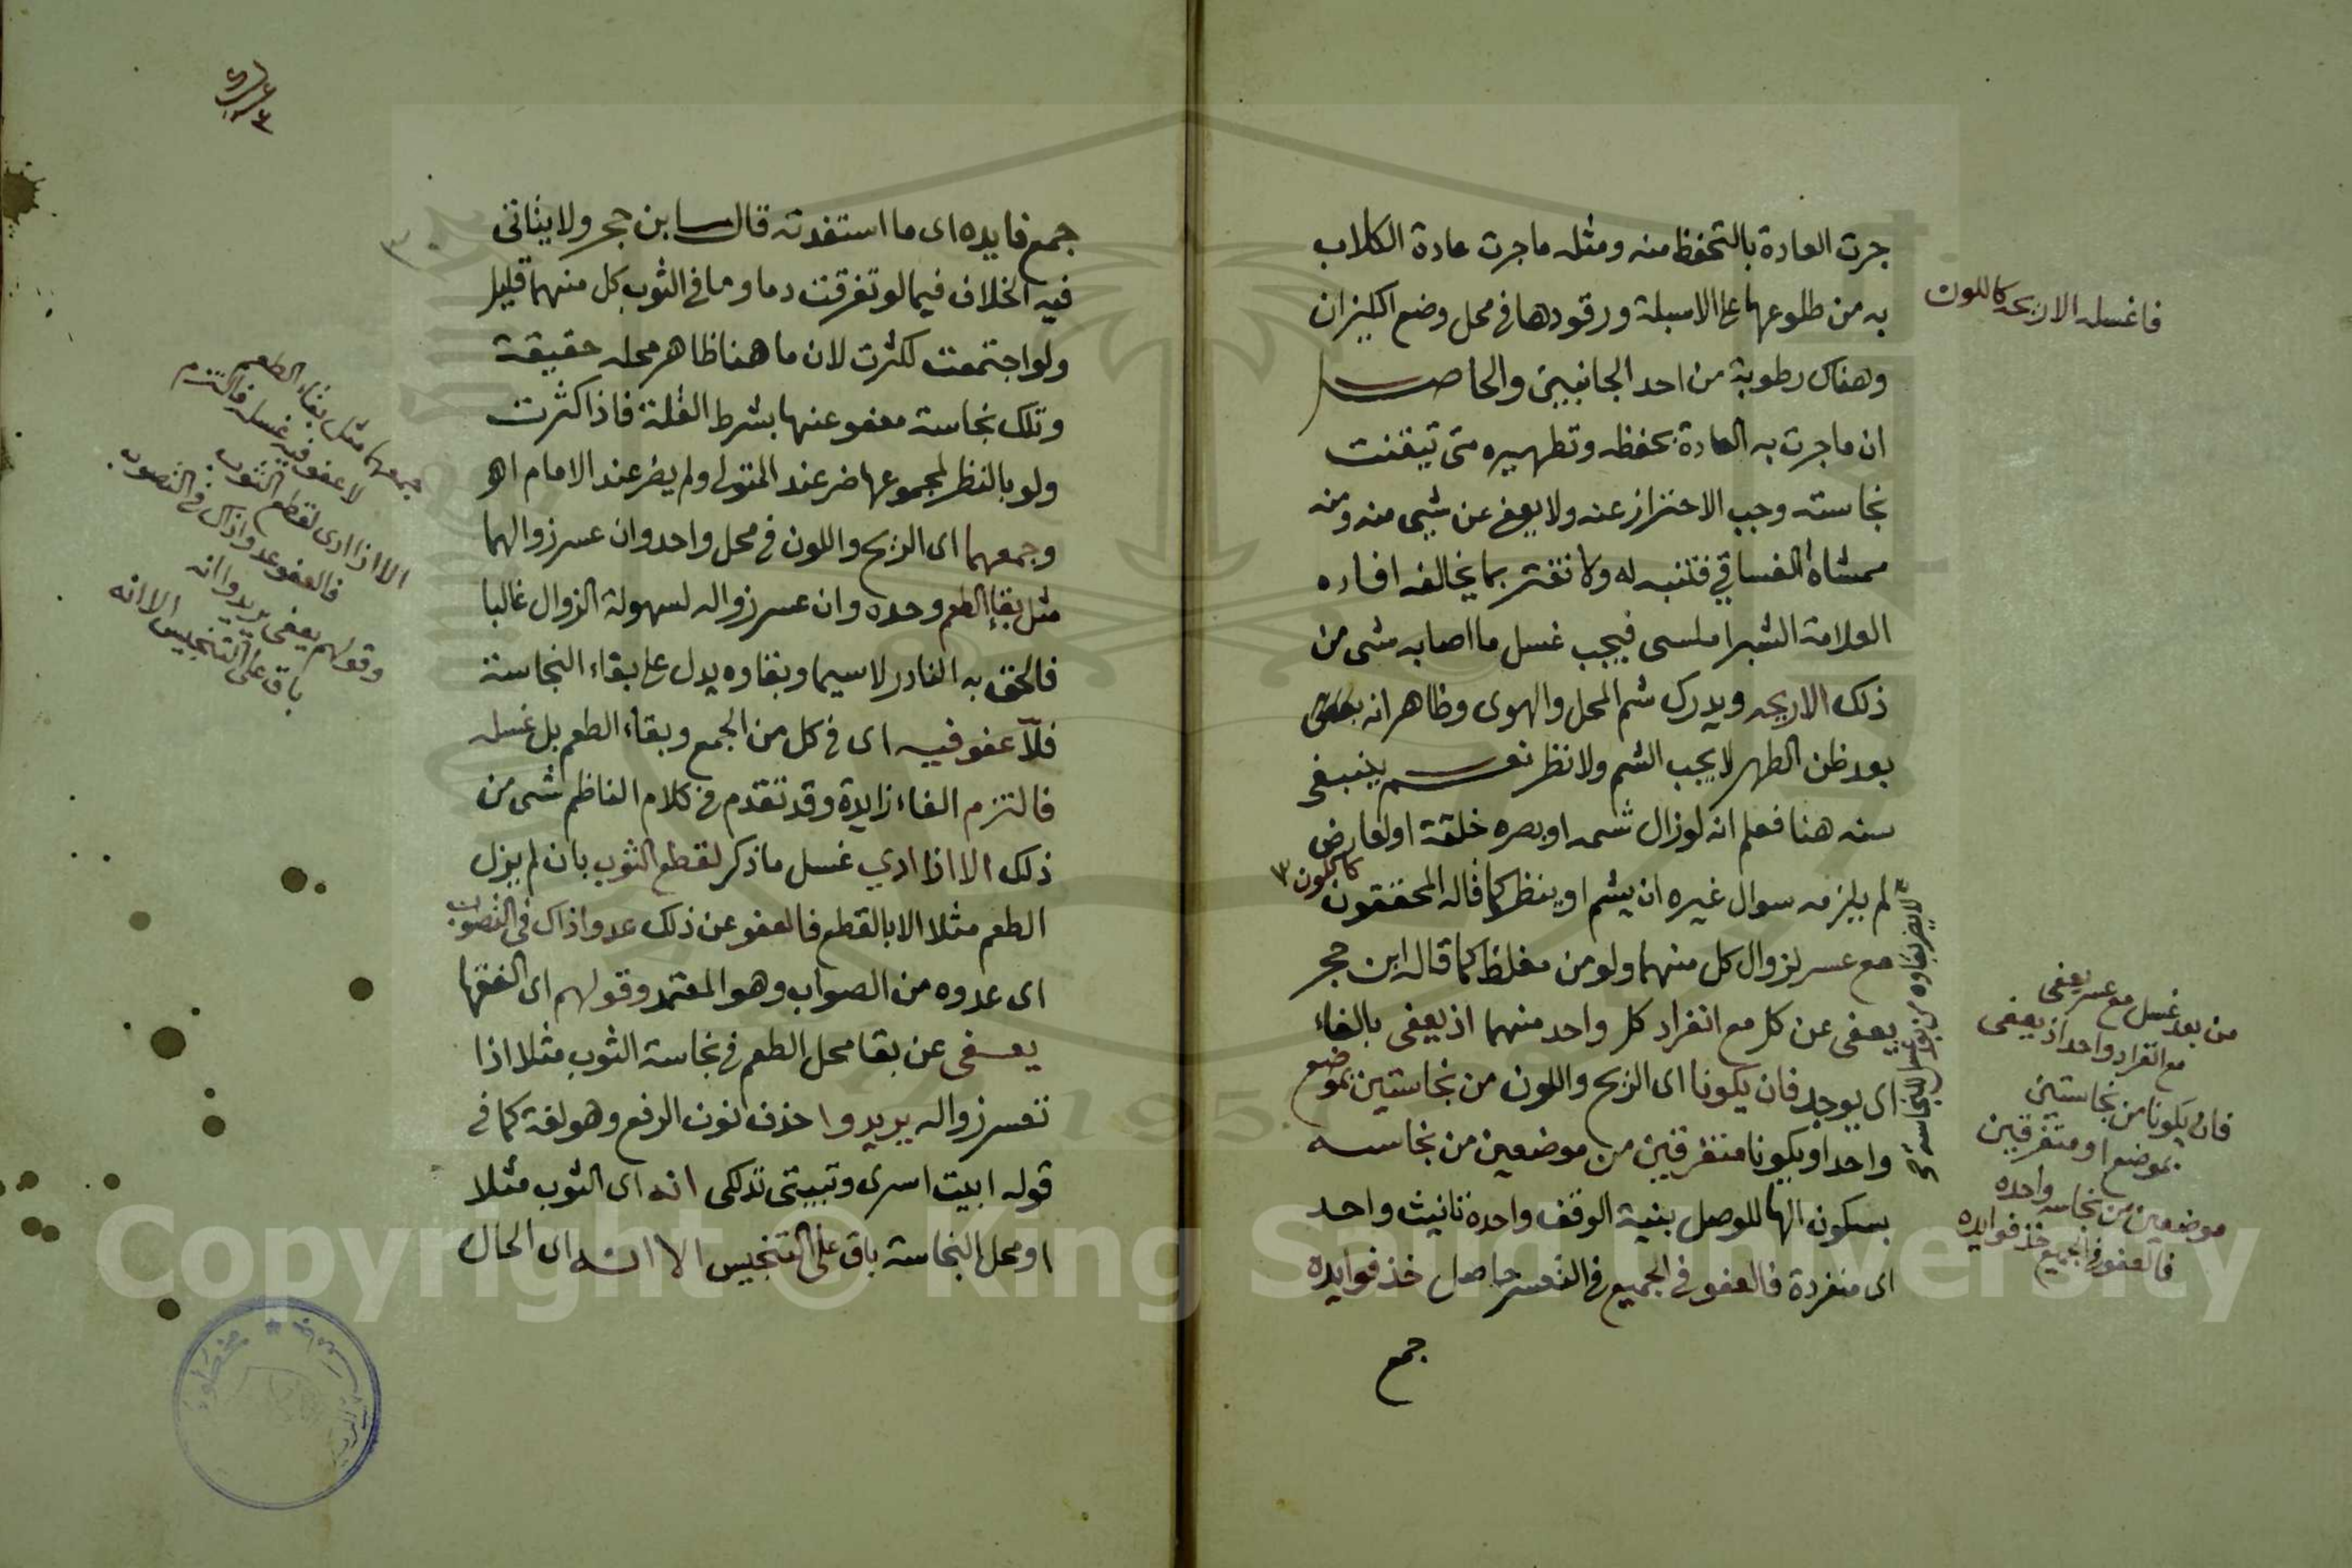 جرت العادة بالتحفظ منه ومثله ما جرت عادة الكلاب
به من طلوعها على الاسبلة ورقودها في محل وضع الكيزان
وهناك رطوبة من احد الجانبين والحاصل
ان ما جرت به العادة بحفظه وتطهيره متى تيقنت
نجاسته وجب الاحتراز عنه ولا يعفى عن شيي منه ومنه
ممشاة الفساقي فتنبه له ولا تغتر بما يخالفه افاده
العلامة الشبراملسى فيجب غسل ما اصابه شى من
ذلك الاريحه ويدرك شم المحل والهوى وظاهر انه
بعد ظن الطهر لا يجب الشم ولا نظر نعم ينبغى
سنه هنا فعلم انه لو زال شمه او بصره خلقة او لعارض
لم يلزمه سوال غيره ان يشم او ينظر كما قاله المحققون
كاللون
مع عسر لزوال كل منهما ولو من مغلظ كما قاله ابن حجر
يعفى عن كل مع انفراد كل واحد منهما اذ يعفى بالفاء
اى يوجد فان يكونا اى الريح واللون من نجاستين بموضع
واحد او يكونا متفرقين من موضعين من نجاسه
بسكون الها للوصل بنية الوقف واحدة تانيث واحد
اى منفردة فالعفو في الجميع في التعسر حاصل خذ فوايده
جمع
فاغسله الاريحه كاللون
من بعد غسل مع عسر يعفى
مع انفراد واحد اذ يعفى
فان يكونا من نجاستين
بموضع او متفرقين
موضعين من نجاسه واحده
فالعفو في الجميع خذ فوايده
جمع فايده اى ما استفدته قال ابن حجر ولا يتاتى
فيه الخلاف فيما لو تفرقت دما وما في الثوب كل منهما قليل
ولو اجتمعت لكثرت لان ما هنا ظاهر محله حقيقة
وتلك نجاسة معفو عنها بشرط القلة فاذا كثرت
ولو بالنظر لمجموعها ضر عند المتولى ولم يضر عند الامام اه
وجمعهما اى الريح واللون في محل واحد وان عسر زوالهما
مثل بقاء الطعم وحده وان عسر زواله لسهولة الزوال غالبا
فالحق به النادر لاسيما وبقاوه يدل على بقاء النجاسة
فلا عفو فيه اى في كل من الجمع وبقاء الطعم بل غسله
فالتزم الفاء زايدة وقد تقدم في كلام الناظم شى من
ذلك الا اذا ادي غسل ما ذكر لقطع الثوب بان لم يزل
الطعم مثلا الا بالقطع فالعفو عن ذلك عدوا ذاك فى التصويب
اى عدوه من الصواب وهو المعتمد وقولهم اى الفقها
يعفى عن بقا محل الطعم في نجاسة الثوب مثلا اذا
تعسر زواله يريدوا حذف نون الرفع وهو لغة كما في
قوله ابيت اسرى وتبيتى تدلكى انه اى الثوب مثلا
او محل النجاسة باق على التنجيس الا انه اى الحال
جمعهما مثل بقاء الطعم
لا عفو فيه غسله فالتزم
الا اذا ادى لقطع الثوب
فالعفو عدوا ذاك فى التصويب
وقولهم يعفى يريدوا انه
باق على التنجيس الا انه
Copyright © King Saud University
1957